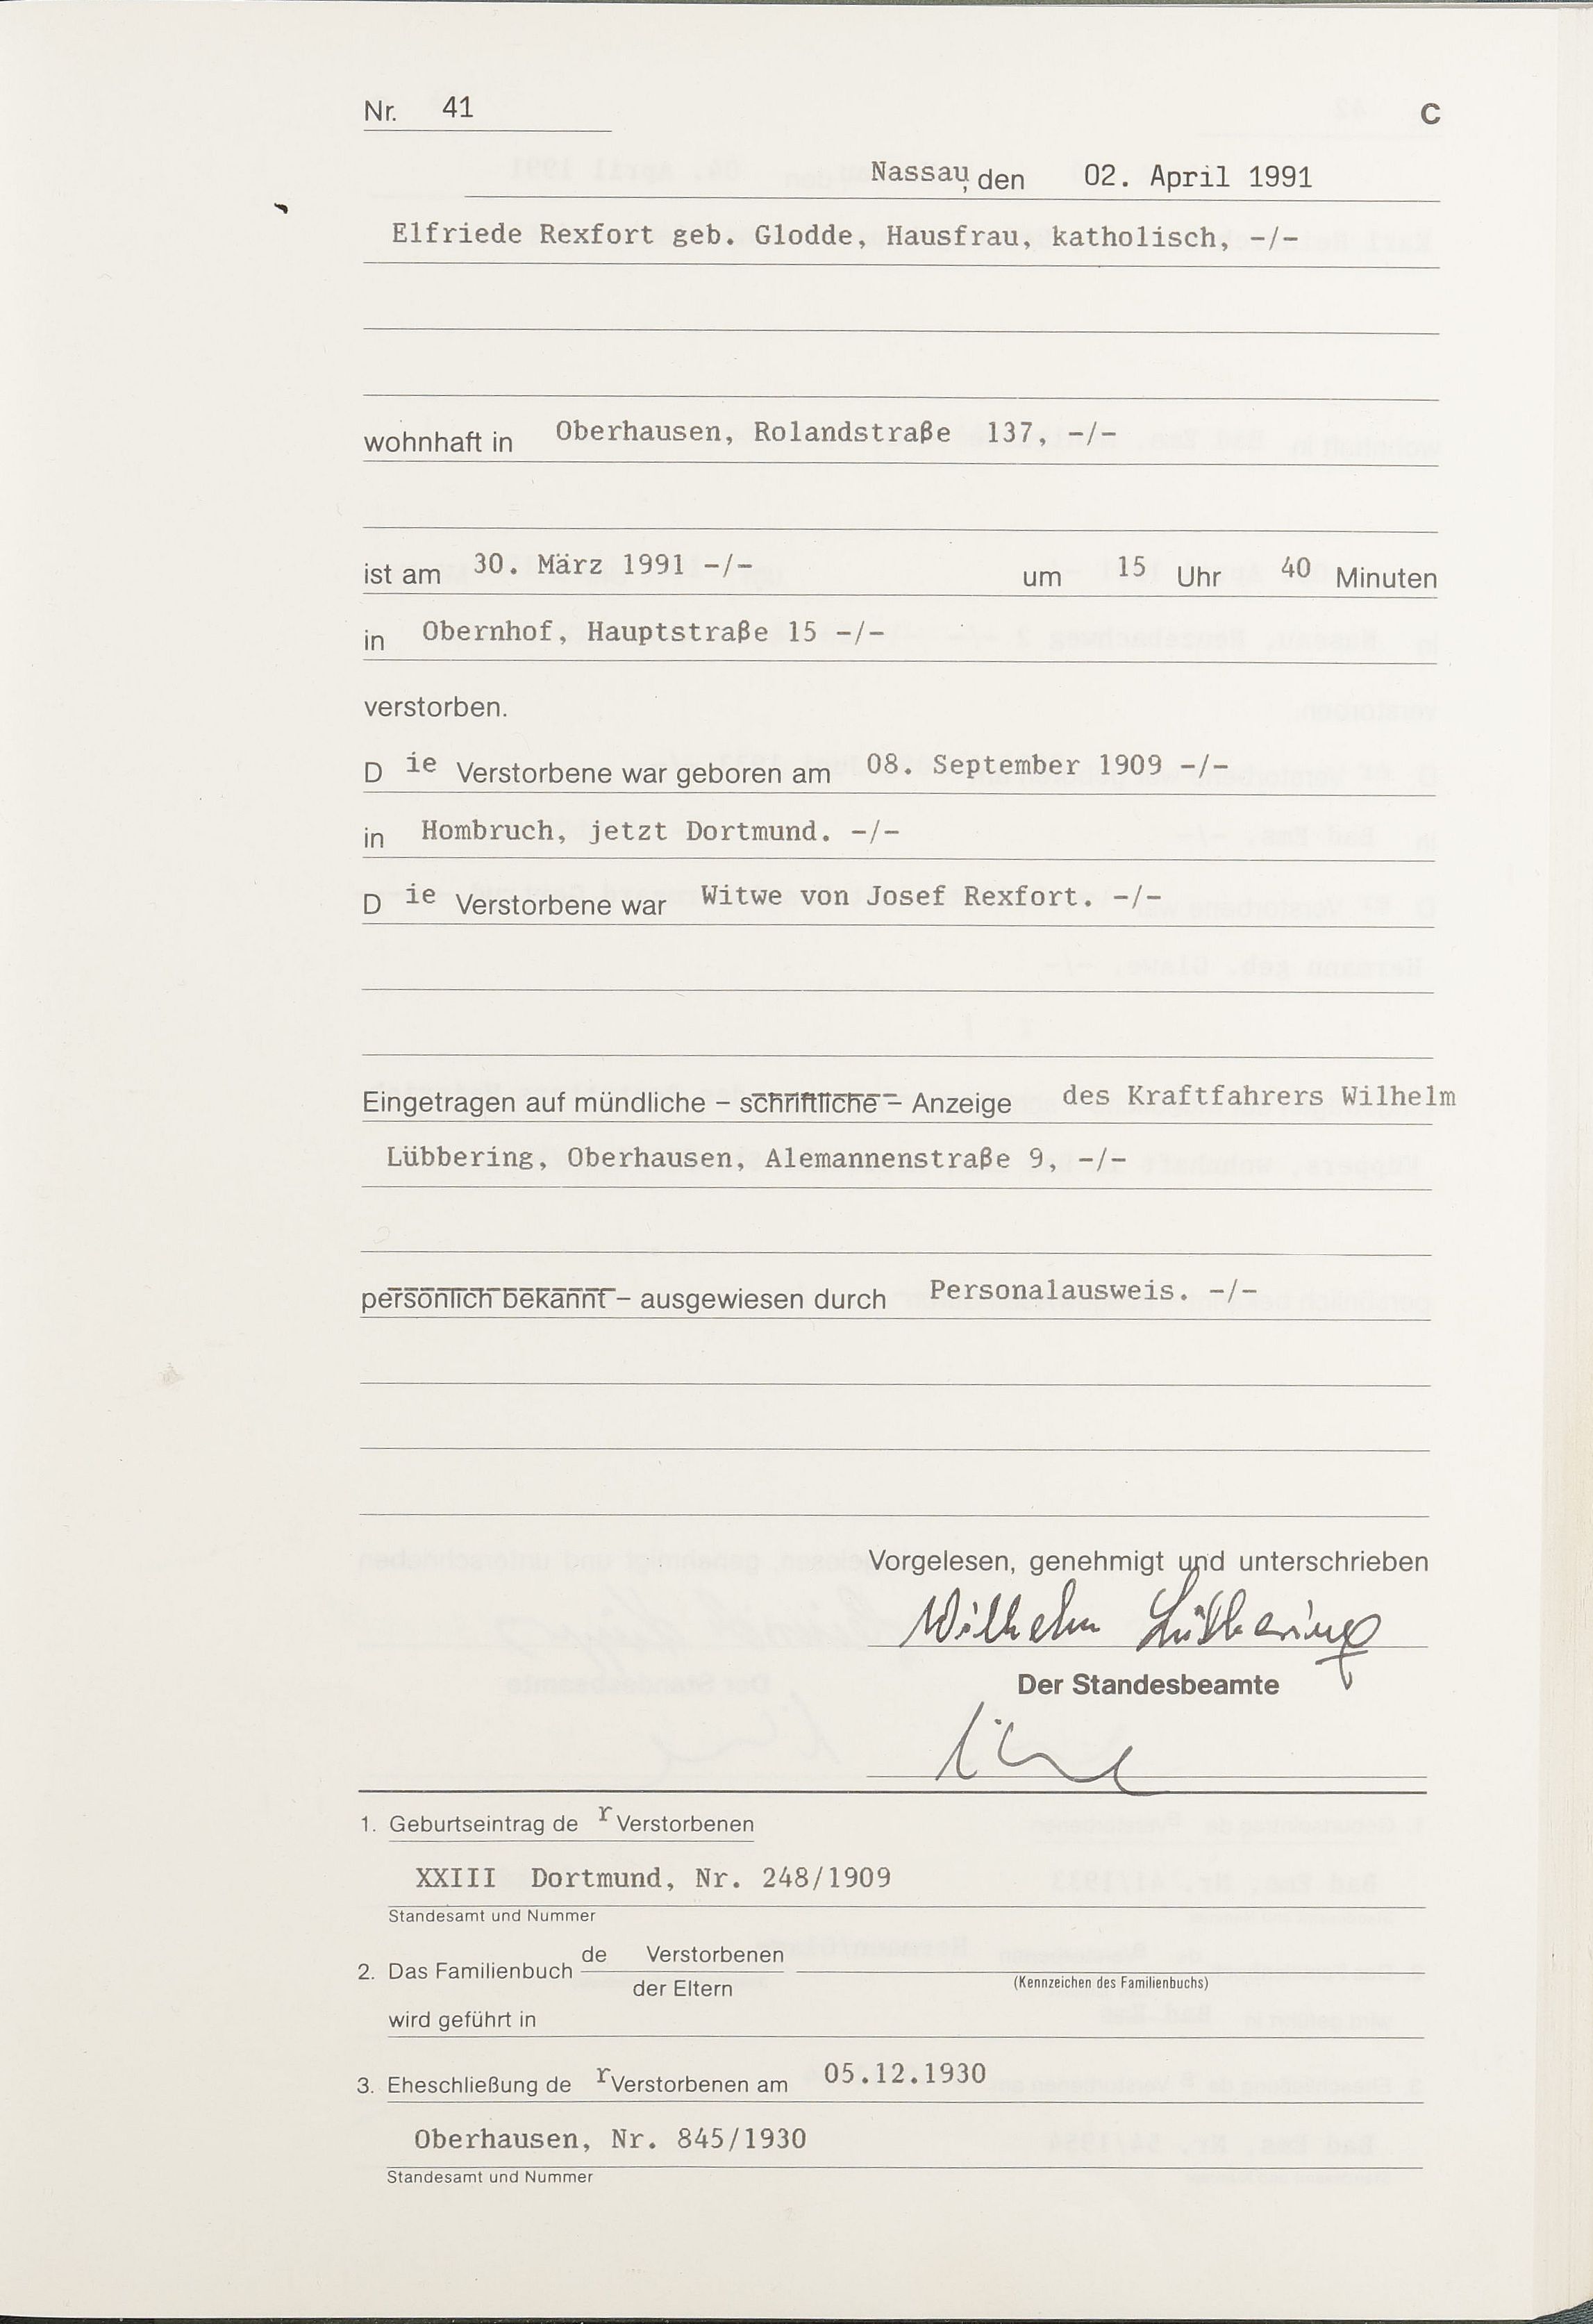 Nr. 41 C
Nassau, den 02. April 1991
Elfriede Rexfort geb. Glodde, Hausfrau, katholisch, -/-
wohnhaft in Oberhausen, Rolandstraße 137, -/-
ist am 30. März 1991 -/- um 15 Uhr 40 Minuten
in Obernhof, Hauptstraße 15 -/-
verstorben.
D ie Verstorbene war geboren am 08. September 1909 -/-
in Hombruch, jetzt Dortmund. -/-
D ie Verstorbene war Witwe von Josef Rexfort. -/-
Eingetragen auf mündliche – schriftliche – Anzeige des Kraftfahrers Wilhelm
Lübbering, Oberhausen, Alemannenstraße 9, -/-
persönlich bekannt – ausgewiesen durch Personalausweis. -/-
Vorgelesen, genehmigt und unterschrieben
Wilhelm Lübbering
Der Standesbeamte
1. Geburtseintrag de r Verstorbenen
XXIII Dortmund, Nr. 248/1909
Standesamt und Nummer
2. Das Familienbuch de Verstorbenen
der Eltern (Kennzeichen des Familienbuchs)
wird geführt in
3. Eheschließung de r Verstorbenen am 05.12.1930
Oberhausen, Nr. 845/1930
Standesamt und Nummer